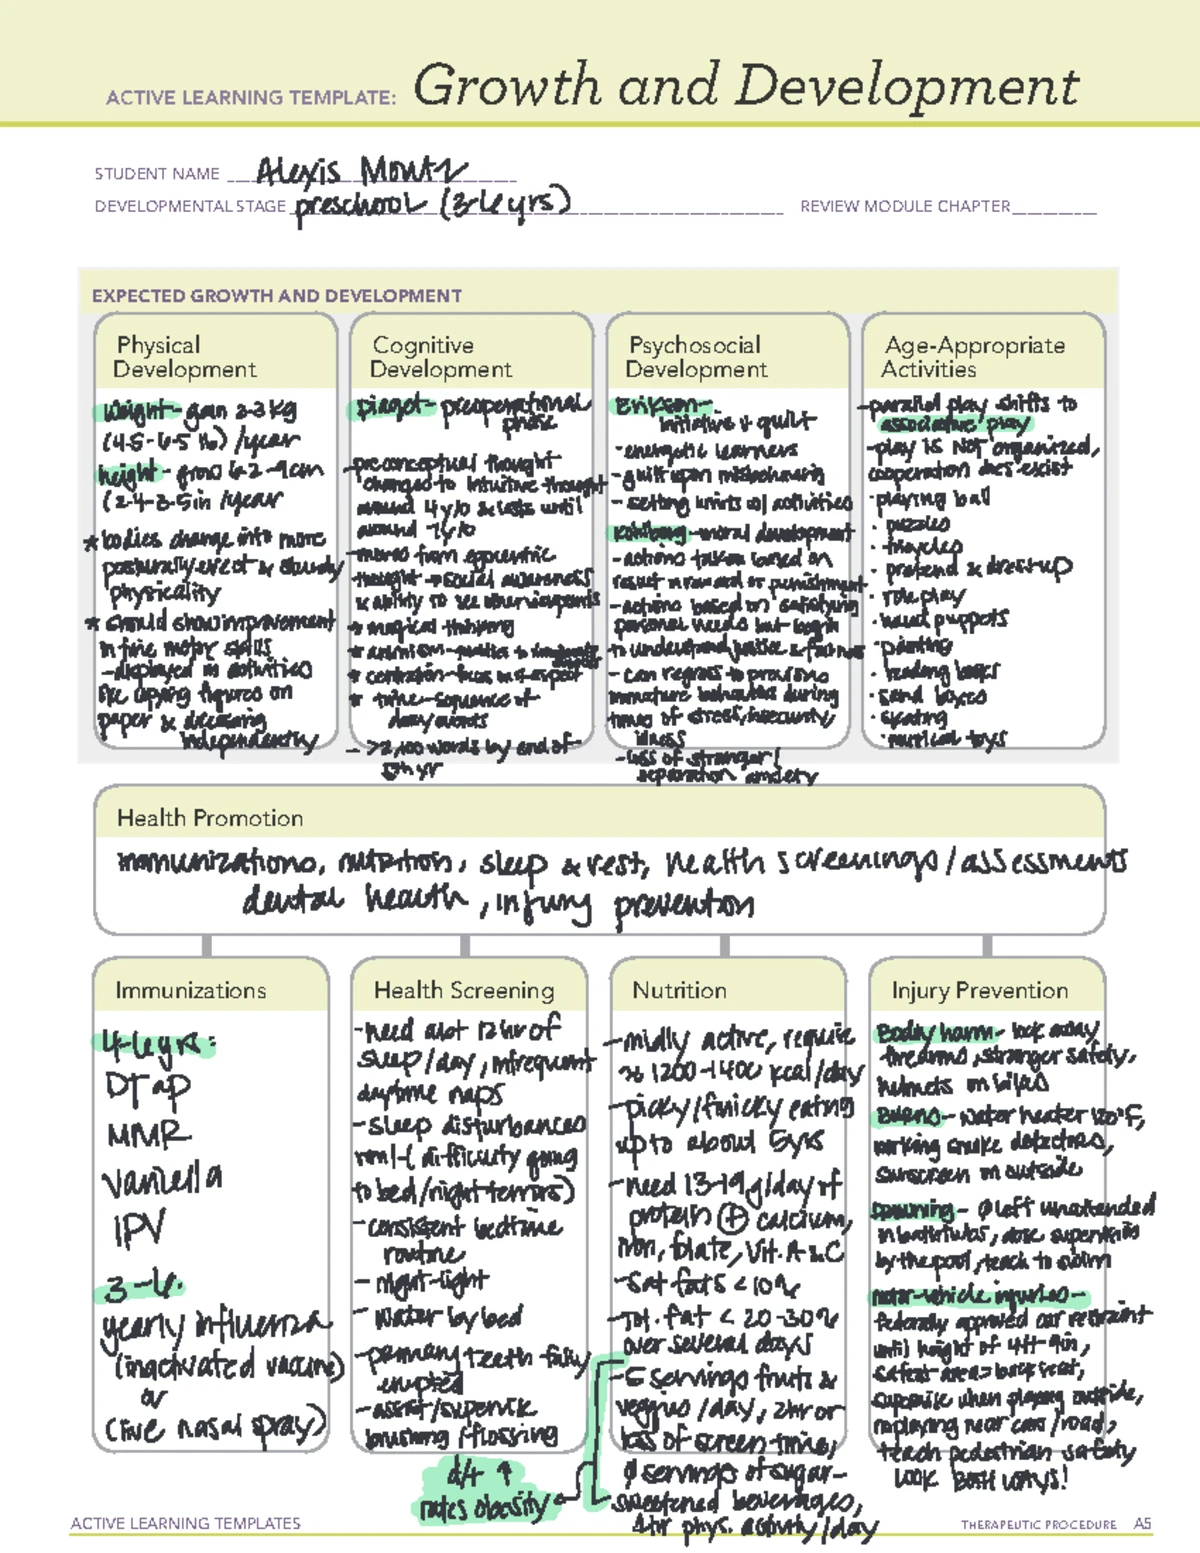 ACTIVE LEARNING TEMPLATE: Growth and Development
STUDENT NAME Alexis Montz
DEVELOPMENTAL STAGE preschool (3-6 yrs) REVIEW MODULE CHAPTER
EXPECTED GROWTH AND DEVELOPMENT
Physical
Development
Weight- gain 2-3 kg
(4.5-6.5 lb) /year
height- grow 6.2-9cm
(2.4-3.5 in /year
* bodies change into more
posturally erect & sturdy
physicality
* should show improvement
in fine motor skills
-displayed in activities
like copying figures on
paper & dressing
independently
Cognitive
Development
piaget- preoperational
phase
-preconceptual thought
changed to intuitive thought
around 4 y/o & lasts until
around 7 y/o
-moves from egocentric
thought → social awareness
& ability to see other viewpoints
* magical thinking
* animism-
* centration- focus on 1 aspect
* time- sequence of
daily events
- >2,100 words by end of
5th yr
Psychosocial
Development
Erikson-
initiative v guilt
-energetic learners
-guilt upon misbehaving
-setting limits w/ activities
Kohlberg-moral development
-actions taken based on
result in reward or punishment
-actions based on satisfying
personal needs but begin
to understand justice & fairness
-can regress to previous
immature behaviors during
times of stress, insecurity,
illness
-loss of stranger/
separation anxiety
Age-Appropriate
Activities
-parallel play shifts to
associative play
-play is NOT organized,
cooperation does exist
·playing ball
· puzzles
· tricycles
· pretend & dress up
· role play
· hand puppets
·painting
· reading books
· sand boxes
· skating
· musical toys
Health Promotion
immunizations, nutrition, sleep & rest, health screenings/assessments
dental health, injury prevention
Immunizations
4-6 yrs:
DTap
MMR
Varicella
IPV
3-6:
yearly influenza
(inactivated vaccine)
or
(live nasal spray)
Health Screening
-need abt 12 hr of
sleep/day, infrequent
daytime naps
-sleep disturbances
(difficulty going
to bed/night terrors)
-consistent bedtime
routine
- night-light
- water by bed
-primary teeth fully
erupted
-assist/supervise
brushing/flossing
d/t ↑
rates obesity
Nutrition
-mildly active, require
≈ 1200-1400 kcal/day
-picky/finicky eating
up to about 5yrs
-need 13-19g/day of
protein ⊕ calcium,
iron, folate, Vit. A & C
-Sat fats < 10%
-Tot. fat < 20-30%
over several days
-5 servings fruits &
veggies/day, 2 hr or
less of screen time,
∅ servings of sugar-
sweetened beverages,
1 hr phys. activity/day
Injury Prevention
Bodily harm- lock away
firearms, stranger safety,
helmets on bikes
Burns-water heater 120°F,
working smoke detectors,
sunscreen on outside
drowning- ∅ left unattended
in bathtubs, close supervision
by the pool, teach to swim
motor-vehicle injuries-
federally approved car restraint
until height of 4ft 9in,
safest area = back seat,
supervise when playing outside,
no playing near cars/road,
teach pedestrian safety
LOOK BOTH WAYS!
ACTIVE LEARNING TEMPLATES THERAPEUTIC PROCEDURE A5